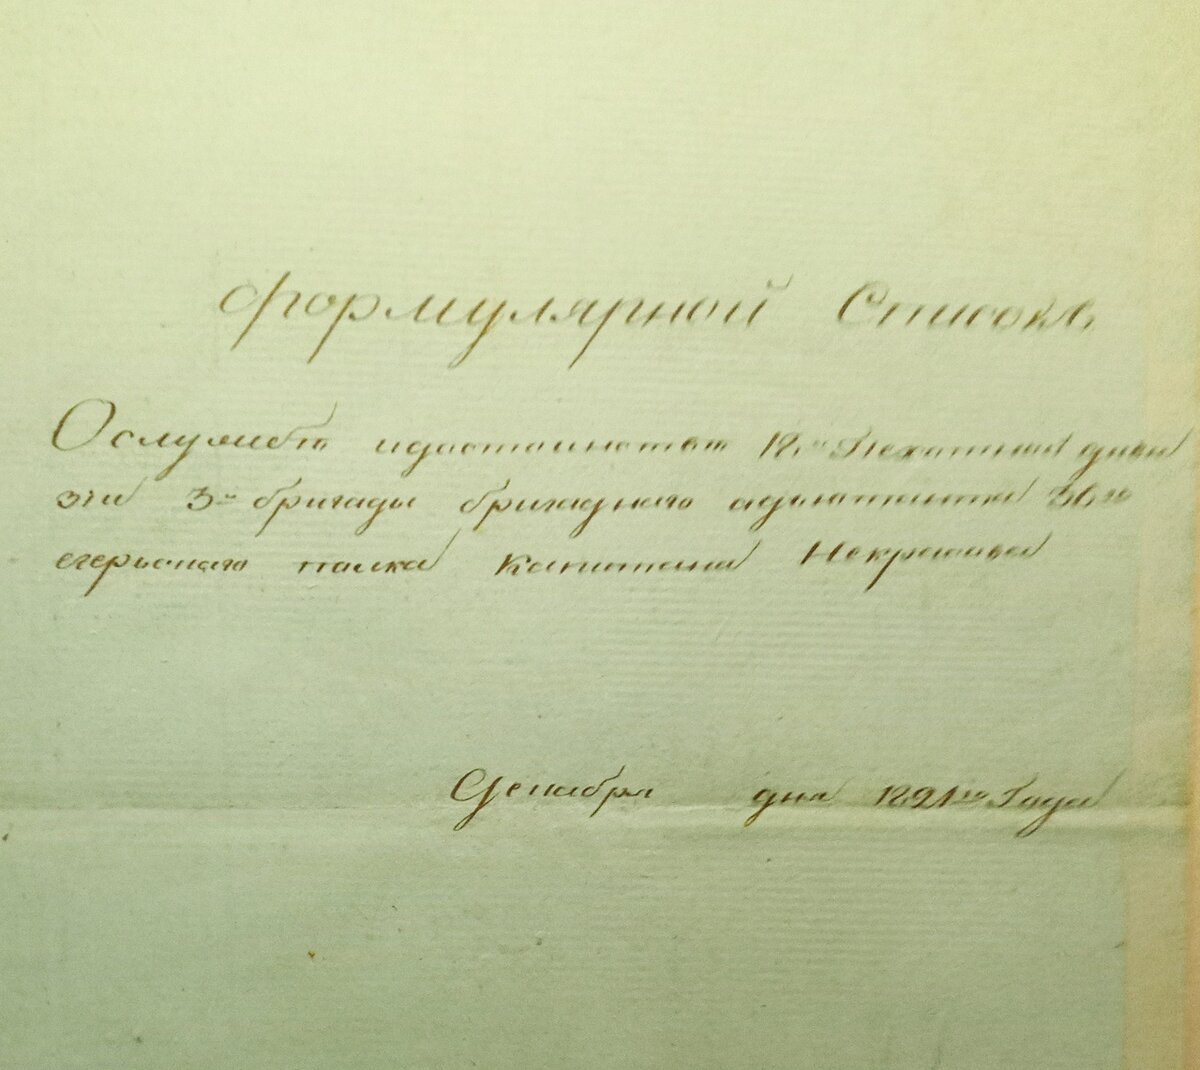 Формулярной Списокъ
О службѣ идостоинствѣ 18й Пехотной диви
зiи 3й бригады бригаднаго адьютанта 36го
егерьскаго полка Капитана Некрасова
Декабря дня 1821го Года